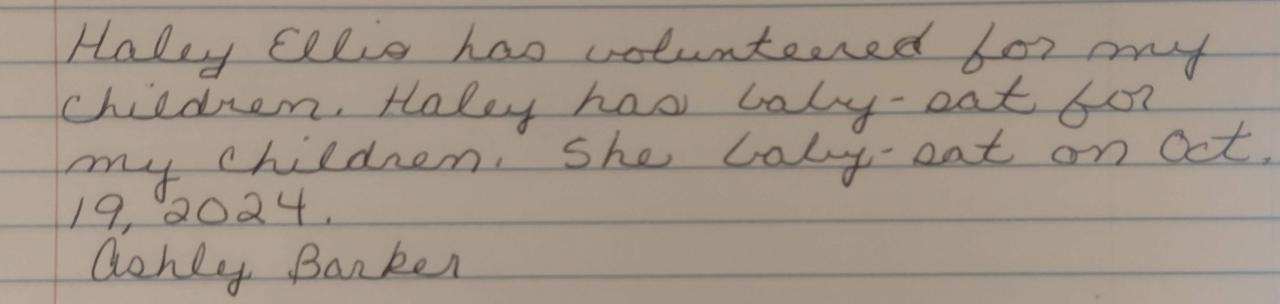 Haley Ellis has volunteered for my
children. Haley has baby-sat for
my children. She baby-sat on Oct.
19, 2024.
Ashley Barker